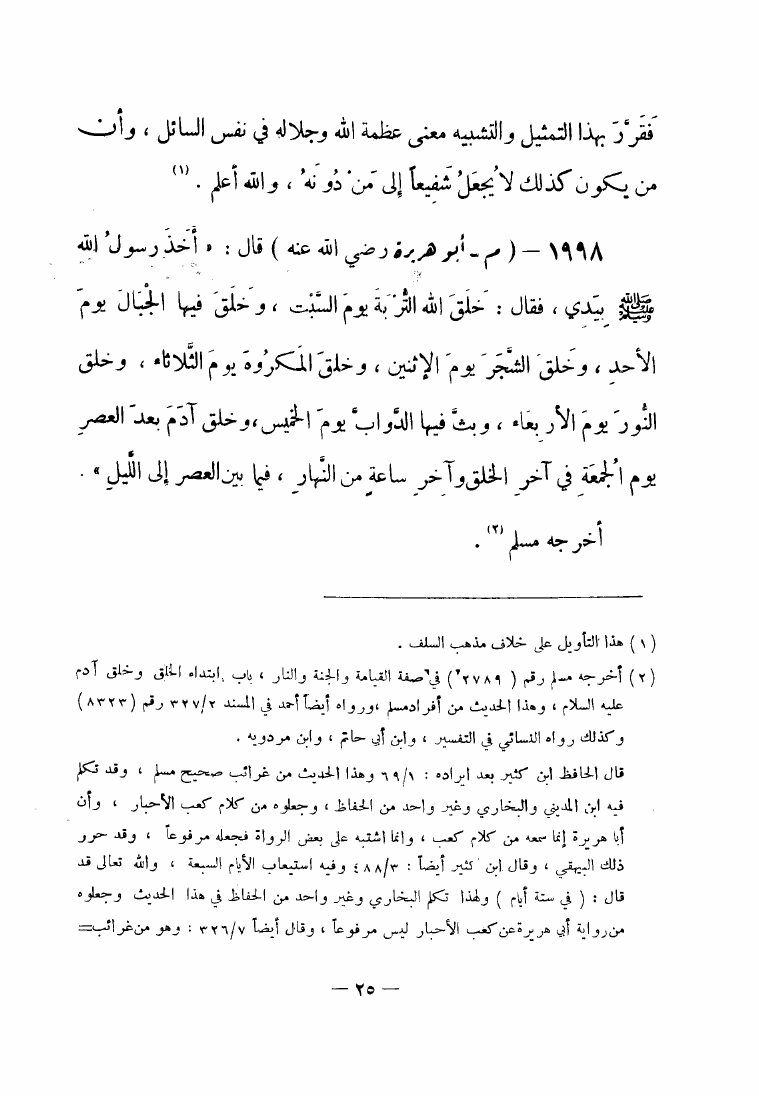 فَقَرَّرَ بهذا التمثيل والتشبيه معنى عظمة الله وجلاله في نفس السائل ، وأن
من يكون كذلك لا يُجعَلُ شَفِيعاً إلى مَنْ دُونَهُ ، والله أعلم . (١)
١٩٩٨ – ( م - أبو هريرة رضي الله عنه ) قال : « أَخذَ رسولُ اللهِ
ﷺ بِيَدِي ، فقال : خَلَقَ الله التُّرْبَةَ يومَ السَّبْت ، وخَلَقَ فيها الْجبَالَ يومَ
الأحدِ ، وخَلقَ الشَّجَرَ يومَ الإثنين ، وخلقَ المَكرُوهَ يومَ الثَّلاثاء ، وخلق
النُّورَ يومَ الأربعَاء ، وبثَّ فيها الدَّوابَّ يومَ الخميس ، وخلق آدَمَ بعدَ العصرِ
يوم الجُمعَةِ في آخرِ الخلق وآخرِ ساعةٍ من النَّهارِ ، فيما بين العصر إلى اللَّيلِ » .
أخرجه مسلم (٢) .
(١) هذا التأويل على خلاف مذهب السلف .
(٢) أخرجه مسلم رقم ( ٢٧٨٩ ) في صفة القيامة والجنة والنار ، باب ابتداء الخلق وخلق آدم
عليه السلام ، وهذا الحديث من أفراد مسلم ، ورواه أيضاً أحمد في المسند ٣٢٧/٢ رقم (٨٣٢٣)
وكذلك رواه النسائي في التفسير ، وابن أبي حاتم ، وابن مردويه .
قال الحافظ ابن كثير بعد ايراده : ٦٩/١ وهذا الحديث من غرائب صحيح مسلم ، وقد تكلم
فيه ابن المديني والبخاري وغير واحد من الحفاظ ، وجعلوه من كلام كعب الأحبار ، وأن
أبا هريرة إنما سمعه من كلام كعب ، وانما اشتبه على بعض الرواة فجعله مرفوعاً ، وقد حرر
ذلك البيهقي ، وقال ابن كثير أيضاً : ٤٨٨/٣ وفيه استيعاب الأيام السبعة ، والله تعالى قد
قال : ( في ستة أيام ) ولهذا تكلم البخاري وغير واحد من الحفاظ في هذا الحديث وجعلوه
من رواية أبي هريرة عن كعب الأحبار ليس مرفوعاً ، وقال أيضاً ٣٢٦/٧ : وهو من غرائب=
— ٢٥ —